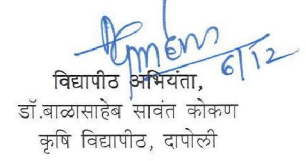 6/12
विद्यापीठ अभियंता,
डॉ.बाळासाहेब सावंत कोकण
कृषि विद्यापीठ, दापोली